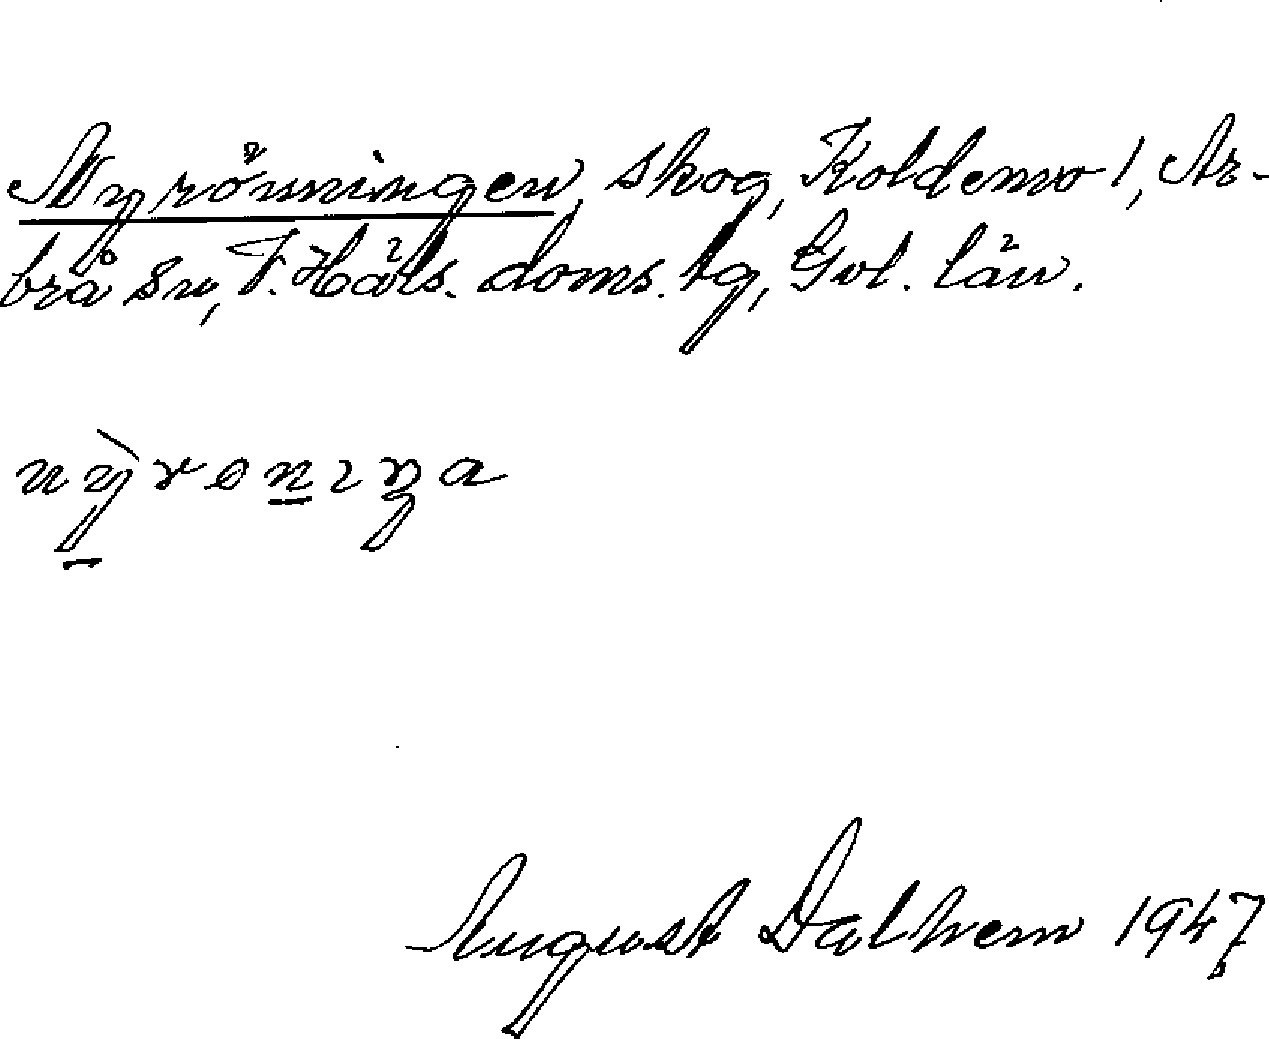 Nyrönningen, skog, Koldemo 1, Ar-
brå sn, V. Häls. doms. tg, Gvl. län.
nỳronıŋa
August Dalhem 1947